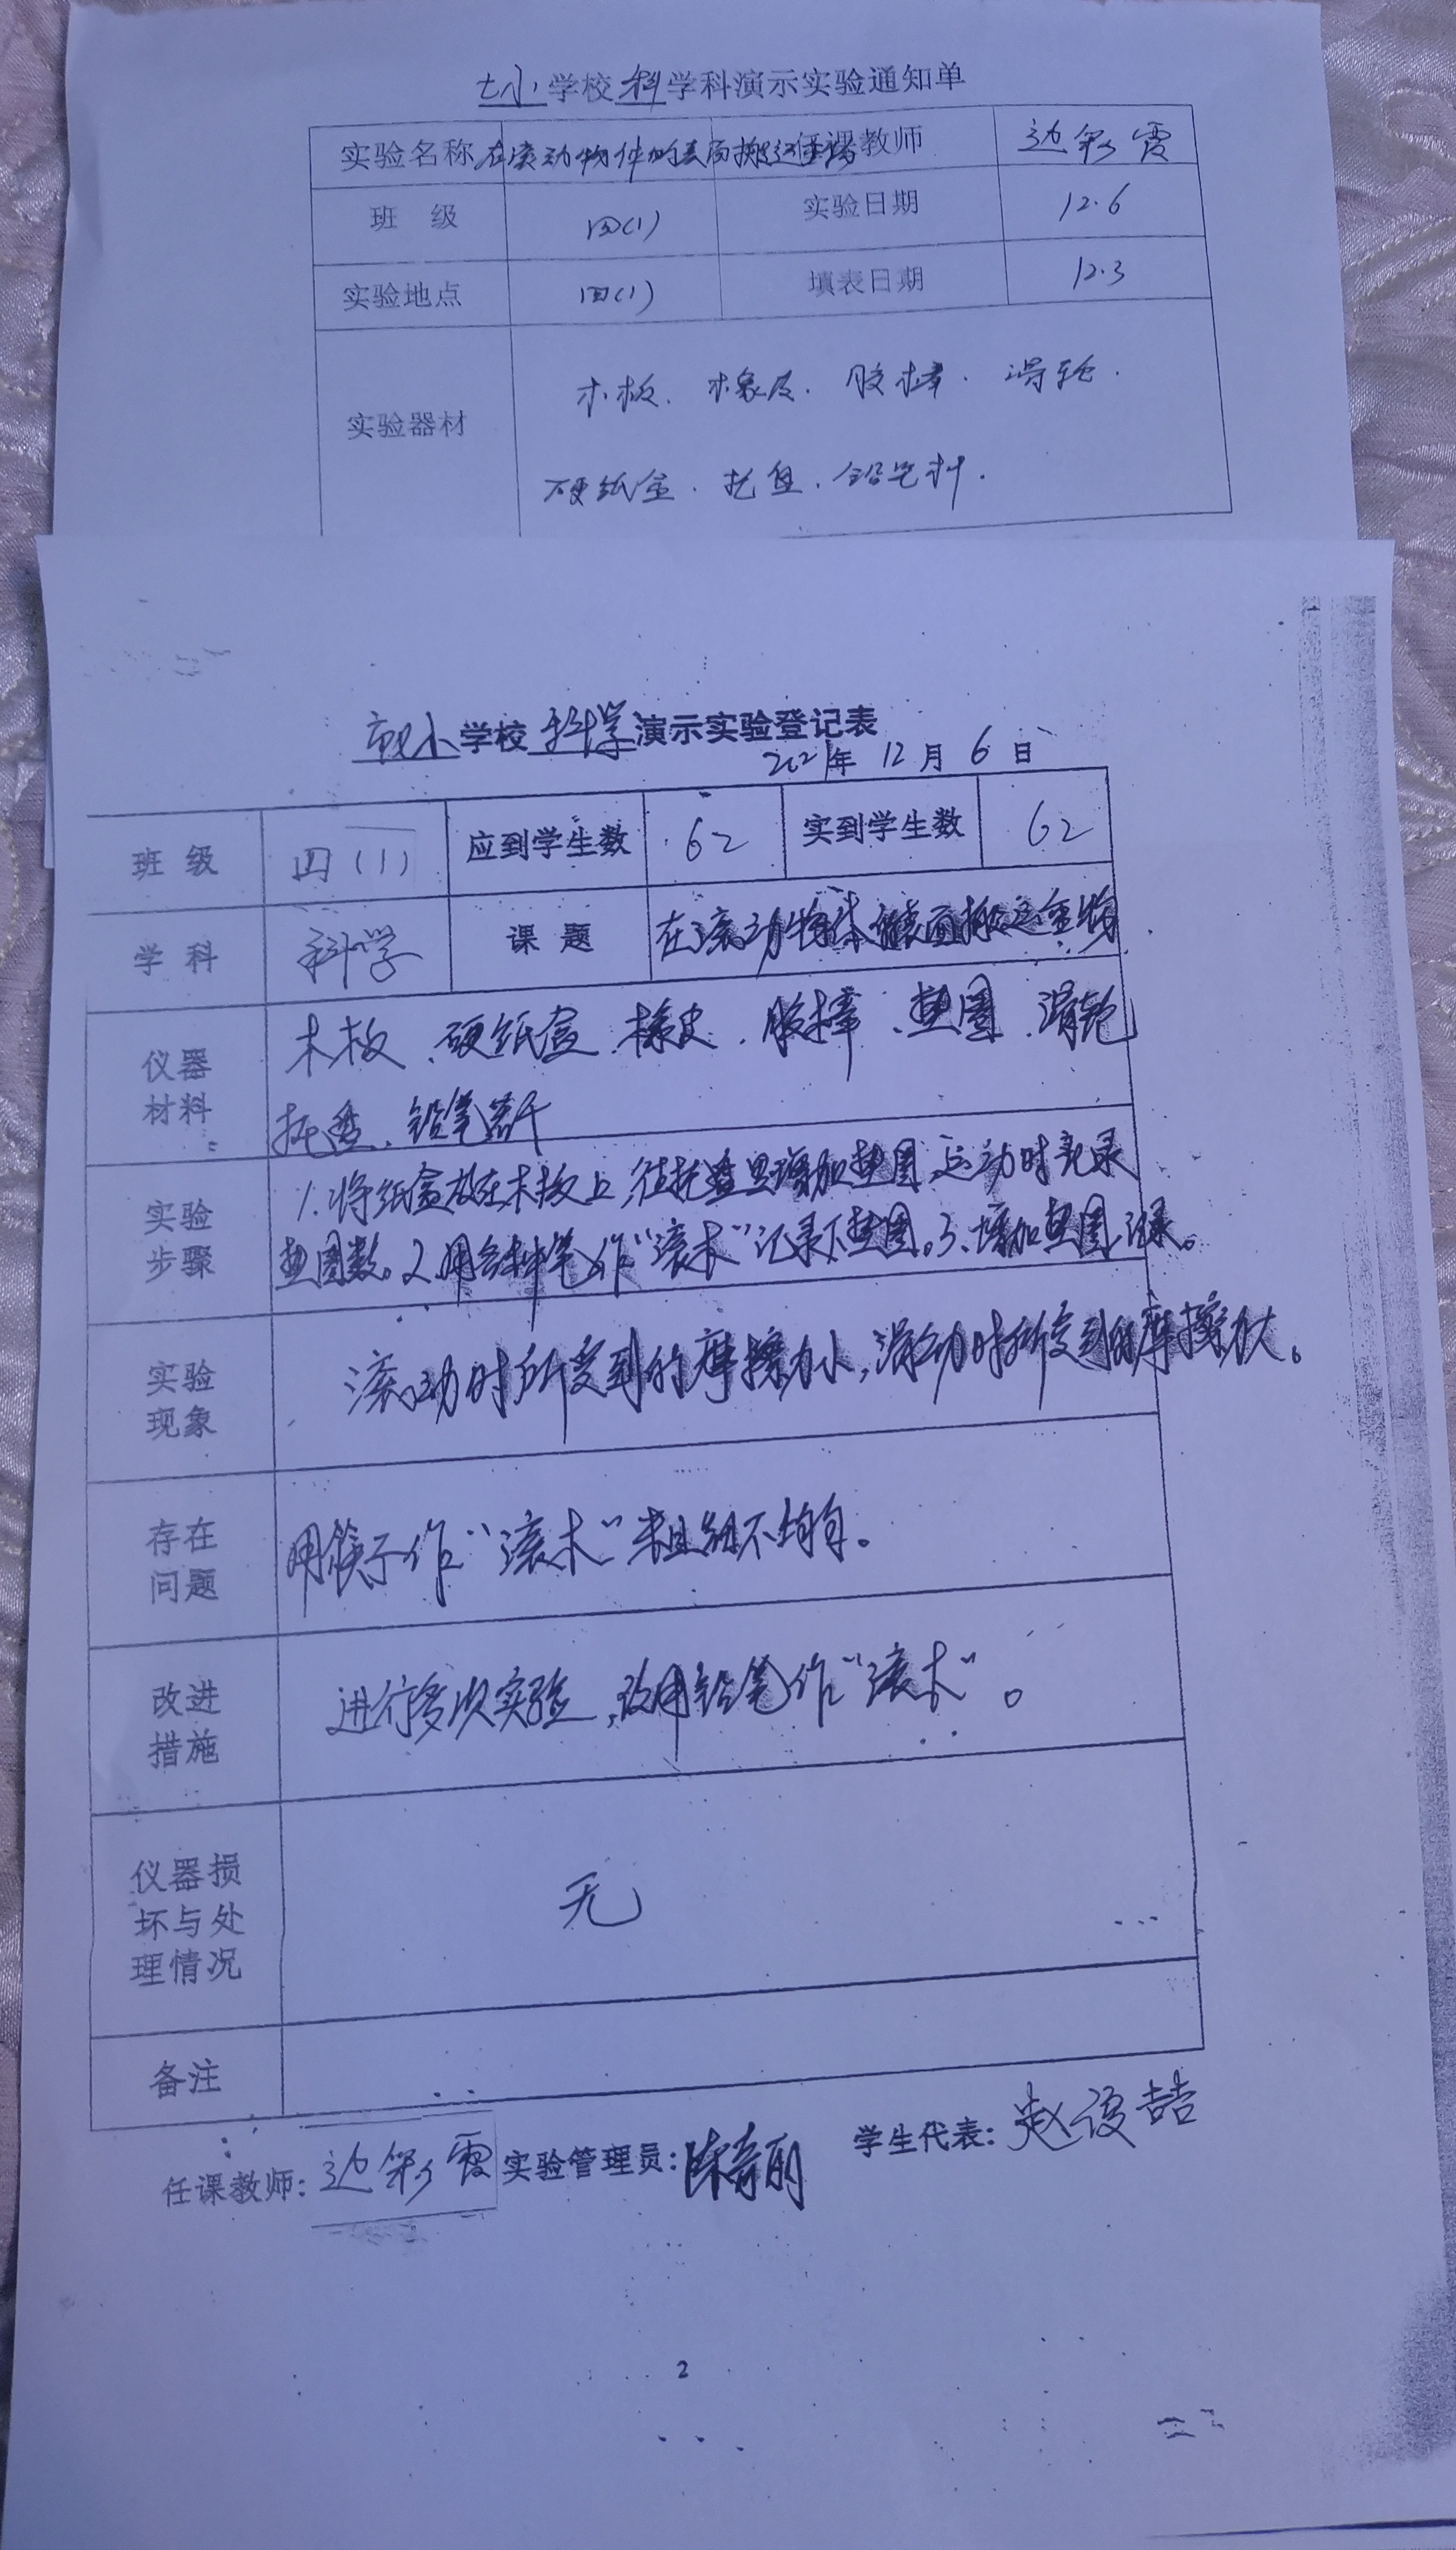 七小学校科学科演示实验通知单
实验名称 在滚动物体的表面搬运重物 任课教师 边彩霞
班 级 四(1) 实验日期 12.6
实验地点 四(1) 填表日期 12.3
实验器材 木板. 橡皮. 胶棒. 滑轮.
硬纸盒. 托盘. 铅笔.
市七小学校科学演示实验登记表
2021年 12月 6日
班 级 四(1) 应到学生数 62 实到学生数 62
学 科 科学 课 题 在滚动物体的表面搬运重物
仪器材料 木板、硬纸盒、橡皮、胶棒、垫圈、滑轮
托盘、铅笔若干
实验步骤 1.将纸盒放在木板上,往托盘里增加垫圈,运动时记录
垫圈数。2.用铅笔作“滚木”记录下垫圈。3.增加垫圈记录。
实验现象 滚动时所受到的摩擦力小,滑动时所受到的摩擦力大。
存在问题 用筷子作“滚木”粗细不均匀。
改进措施 进行多次实验,改用铅笔作“滚木”。
仪器损坏与处理情况 无
备注
任课教师: 边彩霞 实验管理员: 陈奇丽 学生代表: 赵俊喆
2